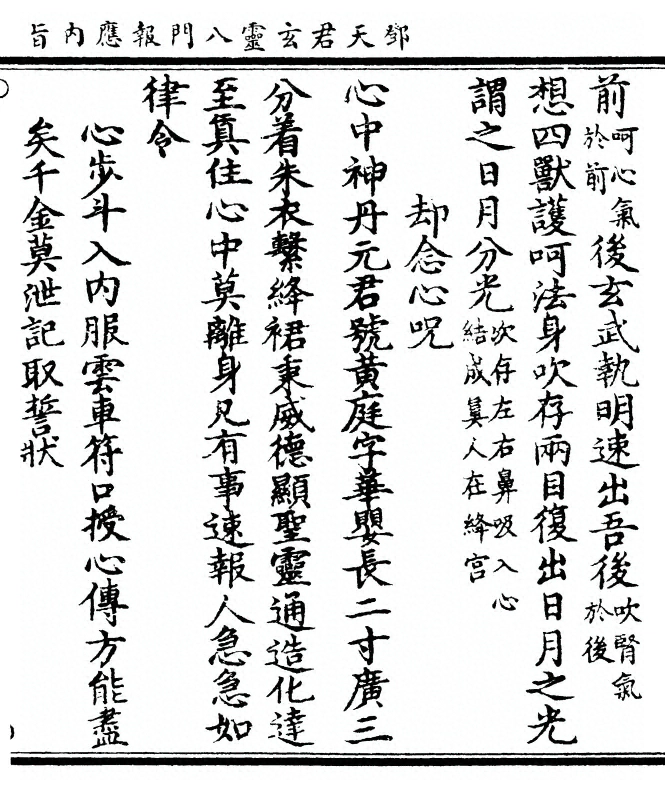 鄧天君玄靈八門報應內旨
前呵心氣於前後玄武執明速出吾後吹腎氣於後
想四獸護呵法身吹存兩目復出日月之光
謂之日月分光次存左右鼻吸入心結成真人在絳宮
却念心呪
心中神丹元君號黃庭字華嬰長二寸廣三
分着朱衣繫絳裙秉威德顯聖靈通造化達
至真住心中莫離身凡有事速報人急急如
律令
心步斗入內服雲車符口授心傳方能盡
矣千金莫泄記取誓狀